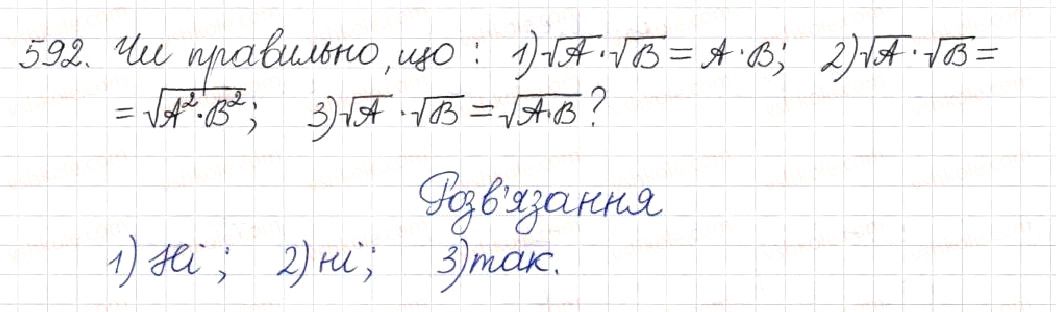 592. Чи правильно, що: 1) √A · √B = A · B; 2) √A · √B =
= √(A² · B²); 3) √A · √B = √(A·B)?
Розв'язання
1) Ні; 2) ні; 3) так.